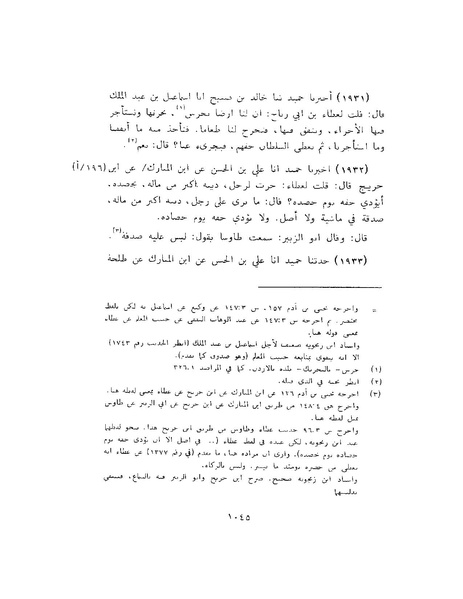 (١٩٣١) أخبرنا حميد ثنا خالد بن صبيح انا اسماعيل بن عبد الملك
قال: قلت لعطاء بن ابي رباح: ان لنا ارضا بجرس(١)، نحرثها ونستأجر
فيها الأجراء، وننفق فيها، فتخرج لنا طعاما. فنأخذ منه ما أنفقنا
وما استأجرنا، ثم نعطي السلطان حقهم، فيجزىء عنا؟ قال: نعم(٢).
(١٩٣٢) اخبرنا حميد انا علي بن الحسن عن ابن المبارك/ عن ابن (١٩٦/أ)
جريج قال: قلت لعطاء: حرث لرجل، دينه اكثر من ماله، يحصده،
أيؤدي حقه يوم حصده؟ قال: ما نرى على رجل، دينه اكثر من ماله،
صدقة في ماشية ولا أصل. ولا يؤدي حقه يوم حصاده.
قال: وقال ابو الزبير: سمعت طاوسا يقول: ليس عليه صدقة(٣).
(١٩٣٣) حدثنا حميد انا علي بن الحسن عن ابن المبارك عن طلحة
= واخرجه يحيى بن آدم ١٥٧، ش ٣: ١٤٧ عن وكيع عن اسماعيل به لكن بلفظ
مختصر. ثم اخرجه ش ٣: ١٤٧ عن عبد الوهاب الثقفي عن حبيب المعلم عن عطاء
بمعنى قوله هنا.
واسناد ابن زنجويه ضعيف لأجل اسماعيل بن عبد الملك (انظر الحديث رقم ١٧٤٣)
الا انه يتقوى بمتابعة حبيب المعلم (وهو صدوق كما تقدم).
(١) جرس - بالتحريك - بلدة بالاردن. كما في المراصد ١: ٣٢٦.
(٢) انظر بحثه في الذي قبله.
(٣) اخرجه يحيى بن آدم ١٢٦ عن ابن المبارك عن ابن جريج عن عطاء بمعنى لفظه هنا.
واخرج هق ٤: ١٤٨ من طريق ابن المبارك عن ابن جريج عن ابي الزبير عن طاوس
مثل لفظه هنا.
واخرج ش ٣: ٩٦ حديث عطاء وطاوس من طريق ابن جريج هذا. نحو لفظيهما
عند ابن زنجويه، لكن عنده في لفظ عطاء (.. في اصل الا ان يؤدي حقه يوم
حصاده يوم حصده). وارى ان مراده هنا، ما تقدم (في رقم ١٣٧٧) عن عطاء انه
يعطي من حضره يومئذ ما تيسر. وليس بالزكاة.
واسناد ابن زنجويه صحيح. صرح ابن جريج وابو الزبير فيه بالسماع، فينتفي
تدليسهما
١٠٤٥